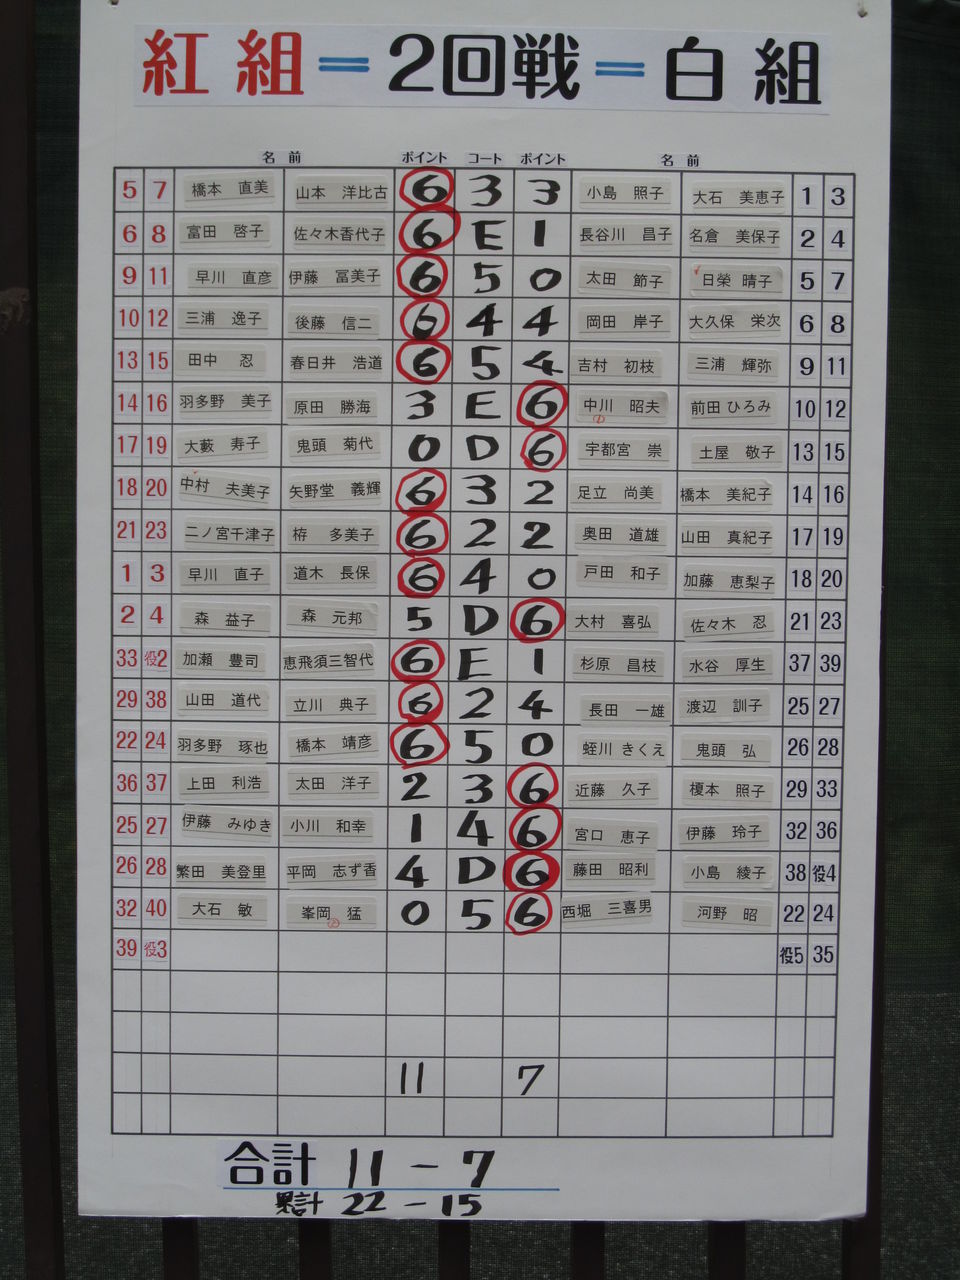 紅組=2回戦=白組
名前 ポイント コート ポイント 名前
5 7 橋本 直美 山本 洋比古 6 3 3 小島 照子 大石 美恵子 1 3
6 8 富田 啓子 佐々木香代子 6 E 1 長谷川 昌子 名倉 美保子 2 4
9 11 早川 直彦 伊藤 冨美子 6 5 0 太田 節子 日榮 晴子 5 7
10 12 三浦 逸子 後藤 信二 6 4 4 岡田 岸子 大久保 栄次 6 8
13 15 田中 忍 春日井 浩道 6 5 4 吉村 初枝 三浦 輝弥 9 11
14 16 羽多野 美子 原田 勝海 3 E 6 中川 昭夫 前田 ひろみ 10 12
17 19 大藪 寿子 鬼頭 菊代 0 D 6 宇都宮 崇 土屋 敬子 13 15
18 20 中村 夫美子 矢野堂 義輝 6 3 2 足立 尚美 橋本 美紀子 14 16
21 23 二ノ宮千津子 栫 多美子 6 2 2 奥田 道雄 山田 真紀子 17 19
1 3 早川 直子 道木 長保 6 4 0 戸田 和子 加藤 恵梨子 18 20
2 4 森 益子 森 元邦 5 D 6 大村 喜弘 佐々木 忍 21 23
33 役2 加瀬 豊司 恵飛須三智代 6 E 1 杉原 昌枝 水谷 厚生 37 39
29 38 山田 道代 立川 典子 6 2 4 長田 一雄 渡辺 訓子 25 27
22 24 羽多野 琢也 橋本 靖彦 6 5 0 蛭川 きくえ 鬼頭 弘 26 28
36 37 上田 利浩 太田 洋子 2 3 6 近藤 久子 榎本 照子 29 33
25 27 伊藤 みゆき 小川 和幸 1 4 6 宮口 恵子 伊藤 玲子 32 36
26 28 繁田 美登里 平岡 志ず香 4 D 6 藤田 昭利 小島 綾子 38 役4
32 40 大石 敏 峯岡 猛 0 5 6 西堀 三喜男 河野 昭 22 24
39 役3 役5 35
11 7
合計 11-7
累計 22-15